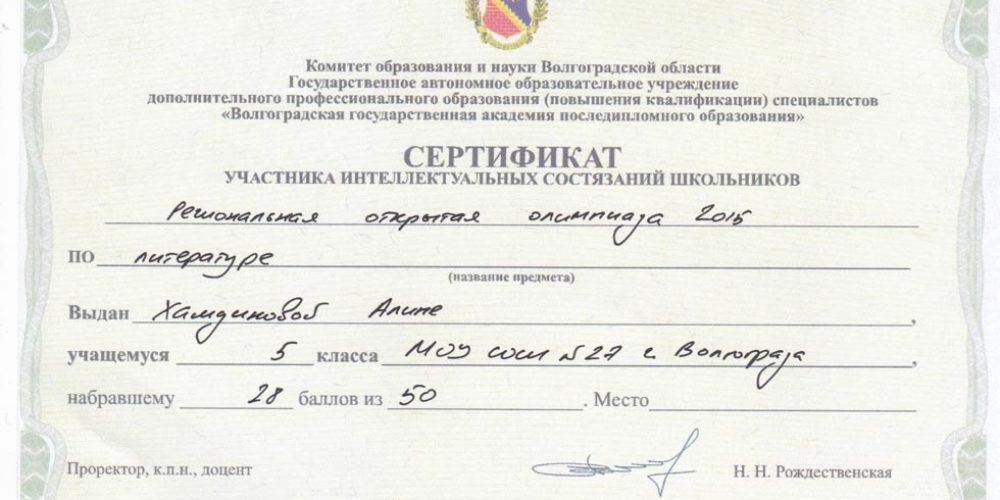 Комитет образования и науки Волгоградской области
Государственное автономное образовательное учреждение
дополнительного профессионального образования (повышения квалификации) специалистов
«Волгоградская государственная академия последипломного образования»
СЕРТИФИКАТ
УЧАСТНИКА ИНТЕЛЛЕКТУАЛЬНЫХ СОСТЯЗАНИЙ ШКОЛЬНИКОВ
Региональная открытая олимпиада 2015
ПО литературе
(название предмета)
Выдан Хамдиновой Алине,
учащемуся 5 класса МОУ СОШ №27 г. Волгограда,
набравшему 28 баллов из 50. Место
Проректор, к.п.н., доцент Н. Н. Рождественская